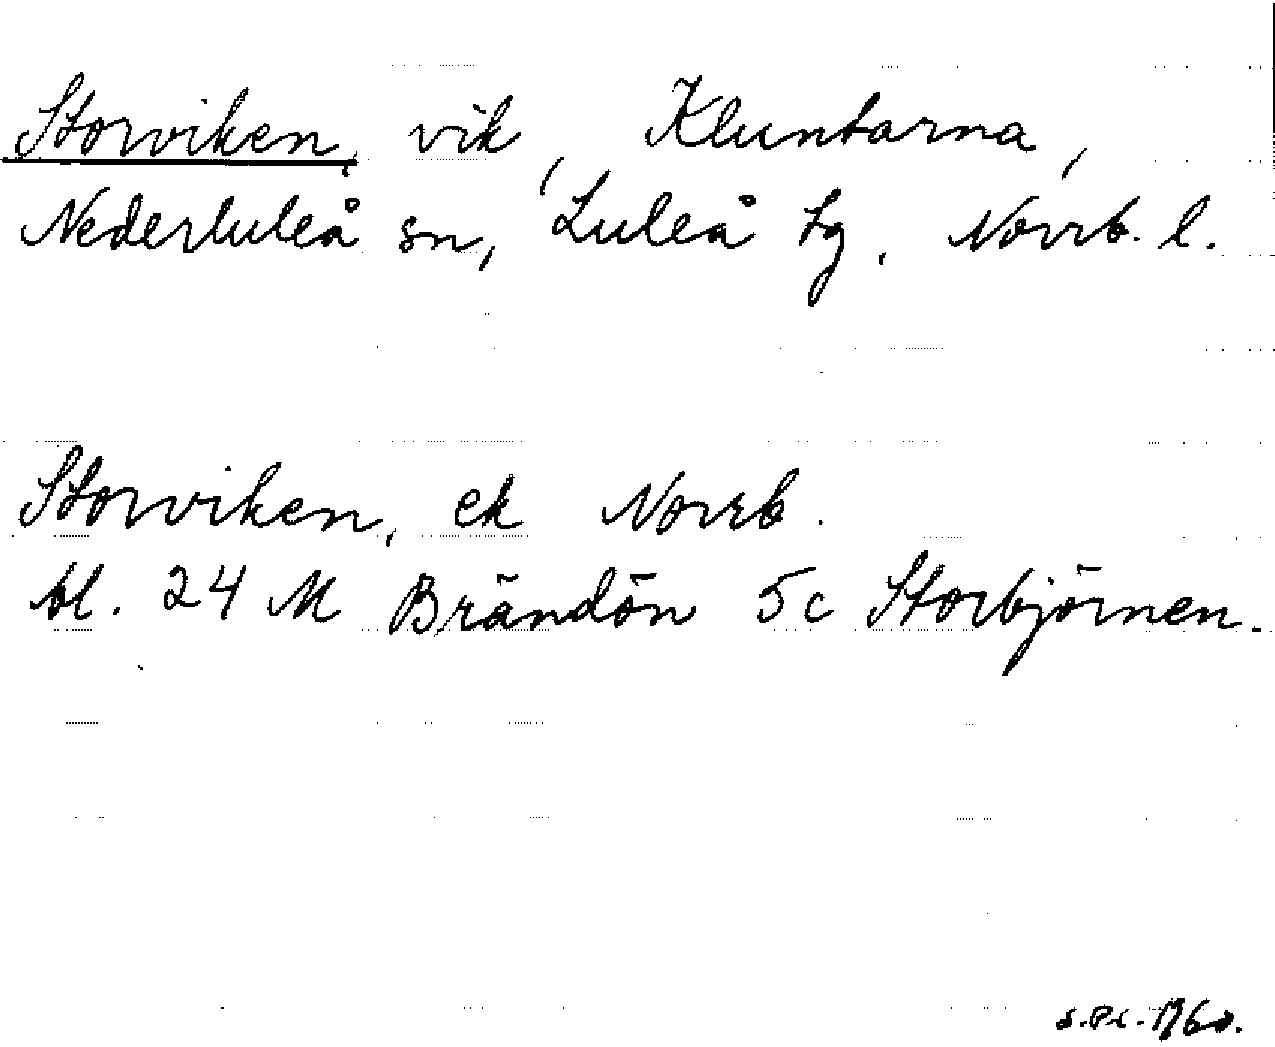 Storviken, vik, Kluntarna,
Nederluleå sn, Luleå tg, Norrb. l.
Storviken, ek Norrb.
bl. 24 M Brändön 5c Storbjörnen.